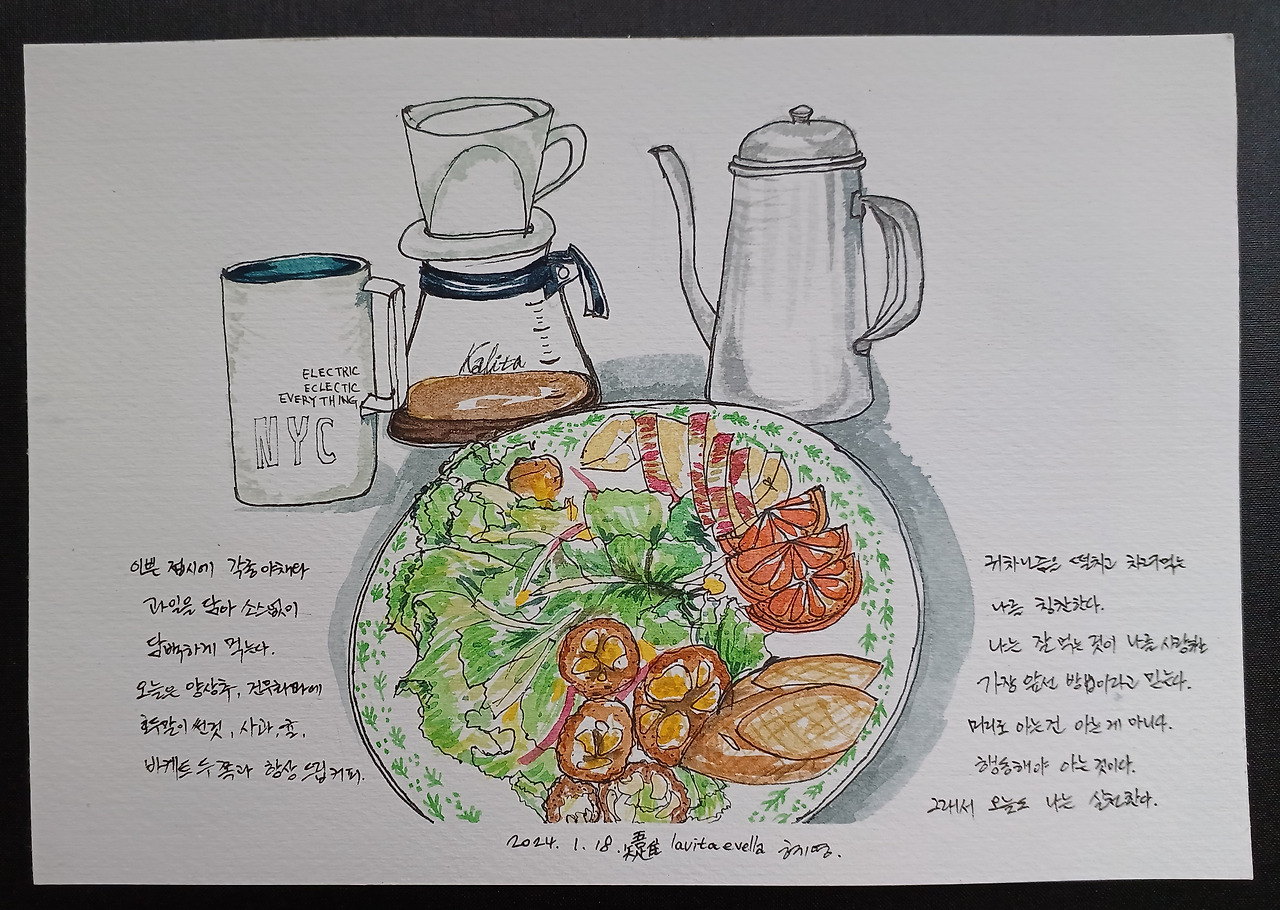 Kalita
ELECTRIC
ECLECTIC
EVERYTHING
NYC
이쁜 접시에 각종야채와
과일을 담아 소스없이
담백하게 먹는다.
오늘은 양상추,
호두말이 썬것, 사과, 귤,
바게트 두 쪽과 항상 드립커피.
귀차니즘은 떨치고 차려먹는
나를 칭찬한다.
나는 잘 먹는 것이 나를 사랑하는
가장 앞선 방법이라고 믿는다.
머리로 아는건 아는게 아니다.
행동해야 아는 것이다.
그래서 오늘도 나는 실천한다.
2024. 1. 18. lavitaevella 허지영.